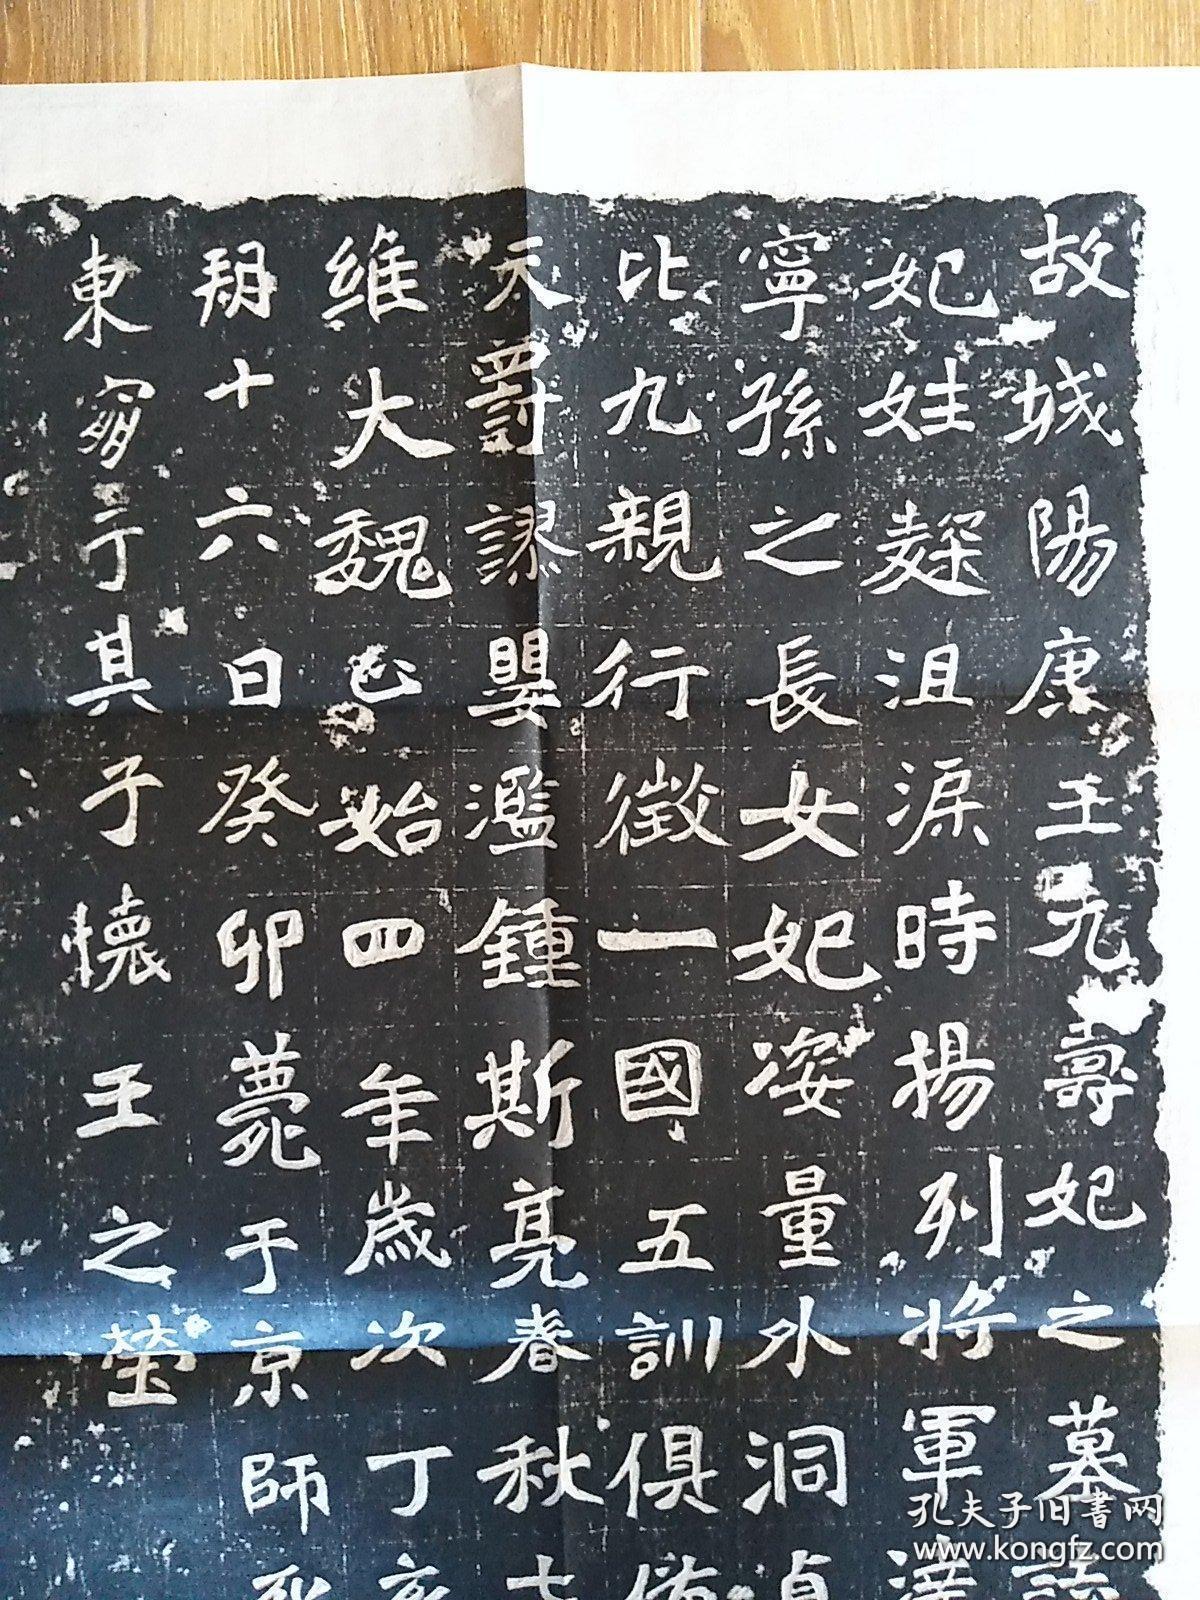 故城陽康王元壽妃之墓誌
妃姓麹沮渠時揚列將軍澆
寧孫之長女妃姿量外洞貞
比九親行徵一國五訓俱備
天罸謬嬰濫鍾斯亮春秋七
維大魏正始四年歲次丁亥
朔十六日癸卯薨于京師
東窈丁其子懷王之瑩
孔夫子旧书网
www.kongfz.com